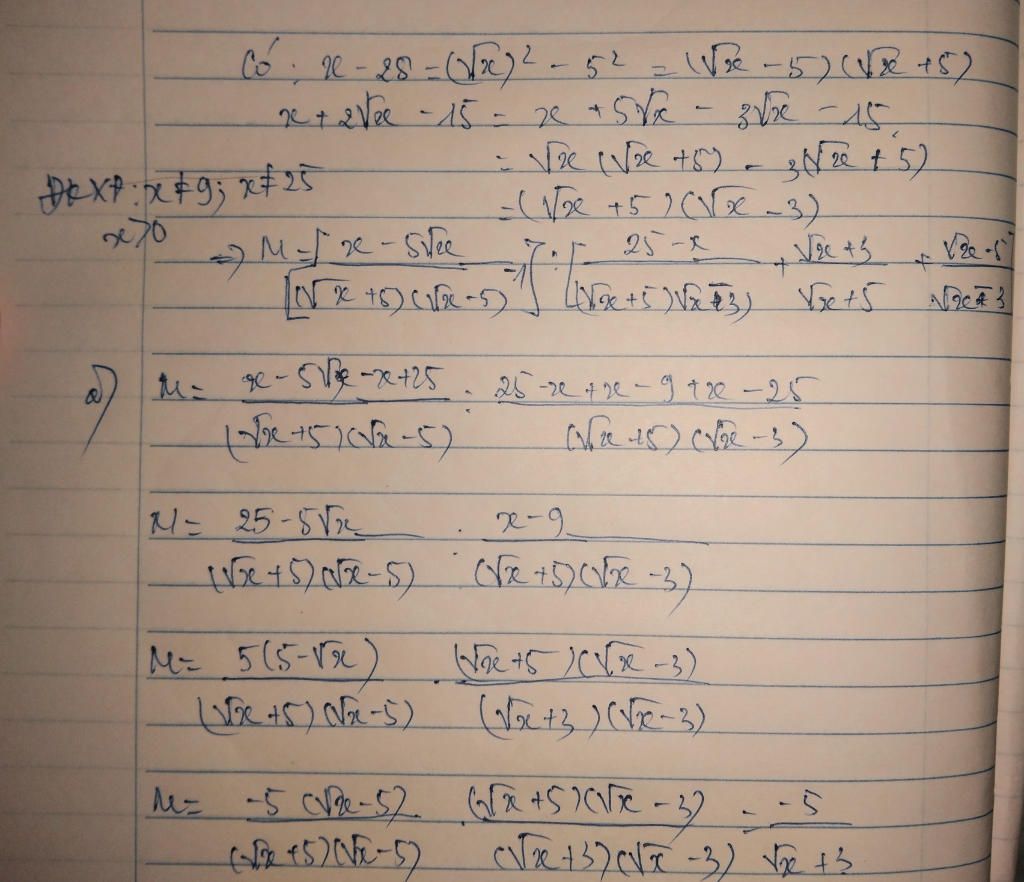 Có : x - 25 = (√x)² - 5² = (√x - 5)(√x + 5)
x + 2√x - 15 = x + 5√x - 3√x - 15
= √x (√x + 5) - 3(√x + 5)
ĐKXĐ: x ≠ 9; x ≠ 25
= (√x + 5)(√x - 3)
x ≥ 0
=> M = [(x - 5√x)/((√x + 5)(√x - 5)) - 1] : [(25 - x)/((√x + 5)(√x - 3)) + (√x + 3)/(√x + 5) + (√x - 5)/(√x - 3)]
a) M = (x - 5√x - x + 25)/((√x + 5)(√x - 5)) : (25 - x + x - 9 + x - 25)/((√x + 5)(√x - 3))
M = (25 - 5√x)/((√x + 5)(√x - 5)) : (x - 9)/((√x + 5)(√x - 3))
M = 5(5 - √x)/((√x + 5)(√x - 5)) . (√x + 5)(√x - 3)/((√x + 3)(√x - 3))
M = -5(√x - 5)/((√x + 5)(√x - 5)) . (√x + 5)(√x - 3)/((√x + 3)(√x - 3)) = -5/(√x + 3)